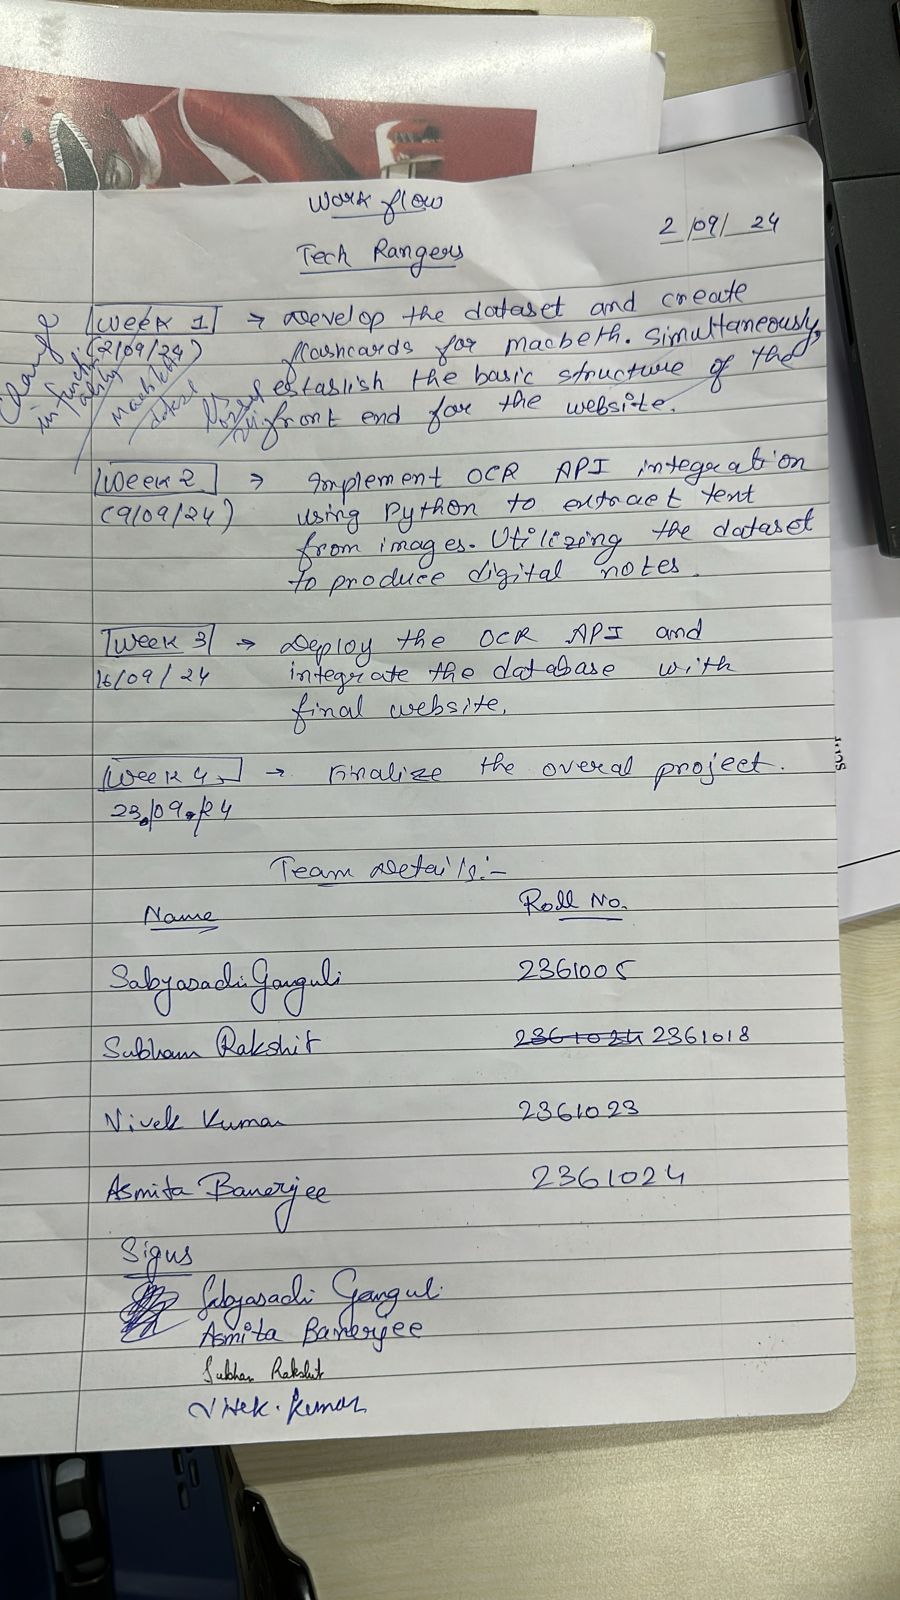 Work flow
2/09/24
Tech Rangers
Week 1 → Develop the dataset and create
(2/09/24) flashcards for macbeth. Simultaneously,
establish the basic structure of the
front end for the website.
Change
in functi
ality
Week 2 → Implement OCR API integration
(9/09/24) using Python to extract text
from images. Utilizing the dataset
to produce digital notes.
Week 3 → Deploy the OCR API and
16/09/24 integrate the database with
final website.
Week 4 → Finalize the overal project.
23/09/24
Team Details:-
Name Roll No.
Sabyasachi Ganguli 2361005
Subham Rakshit 2361018
Vivek Kumar 2361023
Asmita Banerjee 2361024
Signs
Sabyasachi Ganguli
Asmita Banerjee
Subham Rakshit
Vivek Kumar